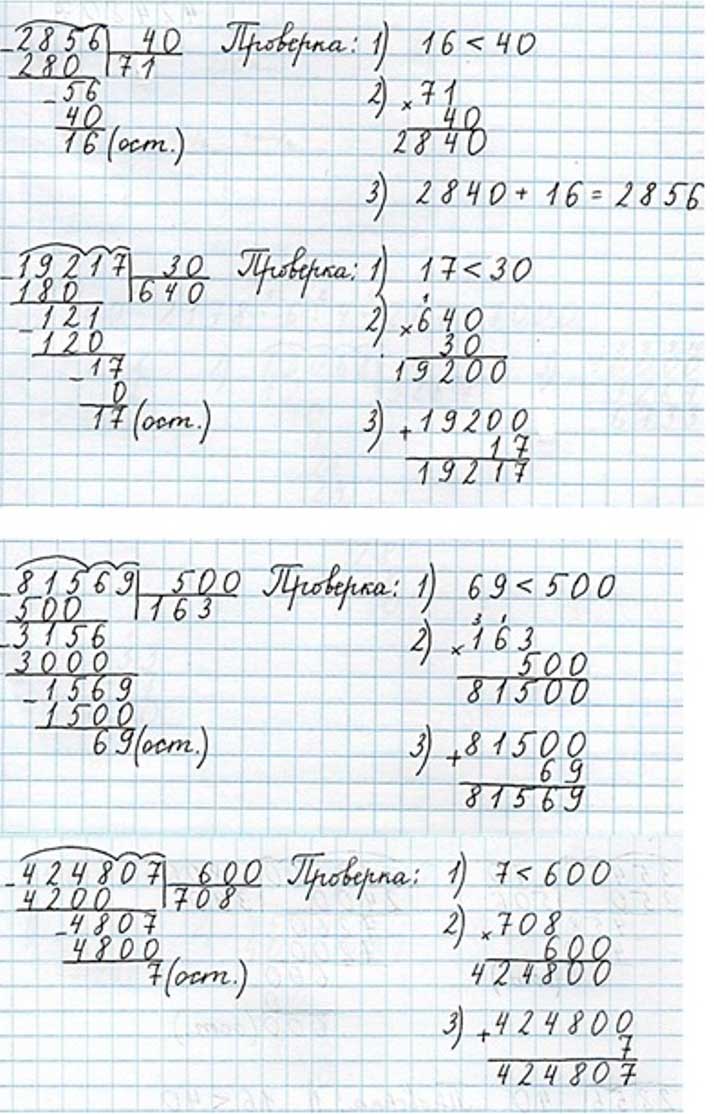 - 2856 | 40 Проверка: 1) 16 < 40
280 71
- 56 2) × 71
40 40
16 (ост.) 2840
3) 2840 + 16 = 2856
- 19217 | 30 Проверка: 1) 17 < 30
180 640
- 121 1
120 2) × 640
- 17 30
0 19200
17 (ост.) 3) + 19200
17
19217
- 81569 | 500 Проверка: 1) 69 < 500
500 163
- 3156 3 1
3000 2) × 163
- 1569 500
1500 81500
69 (ост.) 3) + 81500
69
81569
- 424807 | 600 Проверка: 1) 7 < 600
4200 708
- 4807 2) × 708
4800 600
7 (ост.) 424800
3) + 424800
7
424807